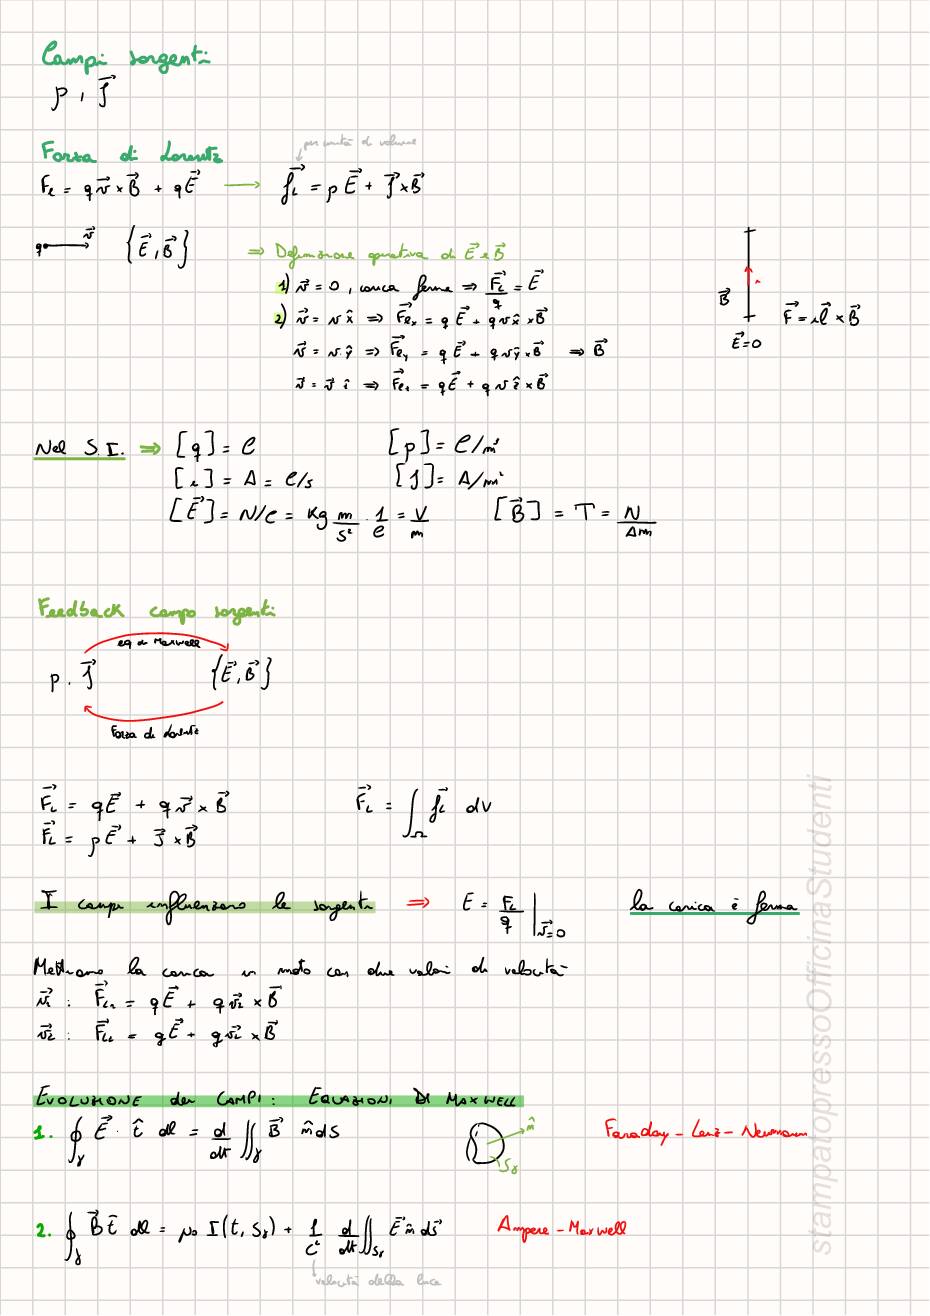 Campi sorgenti
ρ, J⃗
per unità di volume
Forza di Lorentz
F_L = q v⃗ × B⃗ + q E⃗ → f⃗_L = ρ E⃗ + J⃗ × B⃗
q v⃗ {E⃗, B⃗} ⇒ Definizione operativa di E⃗ e B⃗
1) v⃗ = 0, carica ferma ⇒ F⃗_L/q = E⃗
2) v⃗ = v x̂ ⇒ F⃗_Lx = q E⃗ + q v x̂ × B⃗
v⃗ = v ŷ ⇒ F⃗_Ly = q E⃗ + q v ŷ × B⃗ ⇒ B⃗
v⃗ = v⃗ ẑ ⇒ F⃗_Lz = q E⃗ + q v ẑ × B⃗
B⃗ F⃗ = i l⃗ × B⃗
E⃗ = 0
Nel S.I. ⇒ [q] = C [ρ] = C/m³
[i] = A = C/s [J] = A/m²
[E⃗] = N/C = Kg m/s² · 1/C = V/m [B⃗] = T = N/Am
Feedback campo sorgenti
eq di Maxwell
ρ, J⃗ {E⃗, B⃗}
Forza di Lorentz
F⃗_L = q E⃗ + q v⃗ × B⃗ F⃗_L = ∫_Ω f⃗_L dV
F⃗_L = ρ E⃗ + J⃗ × B⃗
I campi influenzano le sorgenti ⇒ E = F_L/q |_v⃗=0 la carica è ferma
Mettiamo la carica in moto con due valori di velocità
v⃗1 : F⃗_L1 = q E⃗ + q v⃗1 × B⃗
v⃗2 : F⃗_L2 = q E⃗ + q v⃗2 × B⃗
EVOLUZIONE dei CAMPI: EQUAZIONI DI MAXWELL
1. ∮_γ E⃗ · t̂ dl = d/dt ∬_γ B⃗ n̂ dS n̂ S_γ Faraday - Lenz - Neumann
2. ∮_γ B⃗ t̂ dl = μ₀ I(t, S_γ) + 1/c² d/dt ∬_Sγ E⃗ n̂ dS⃗ Ampere - Maxwell
velocità della luce
stampatopressoOfficinaStudenti